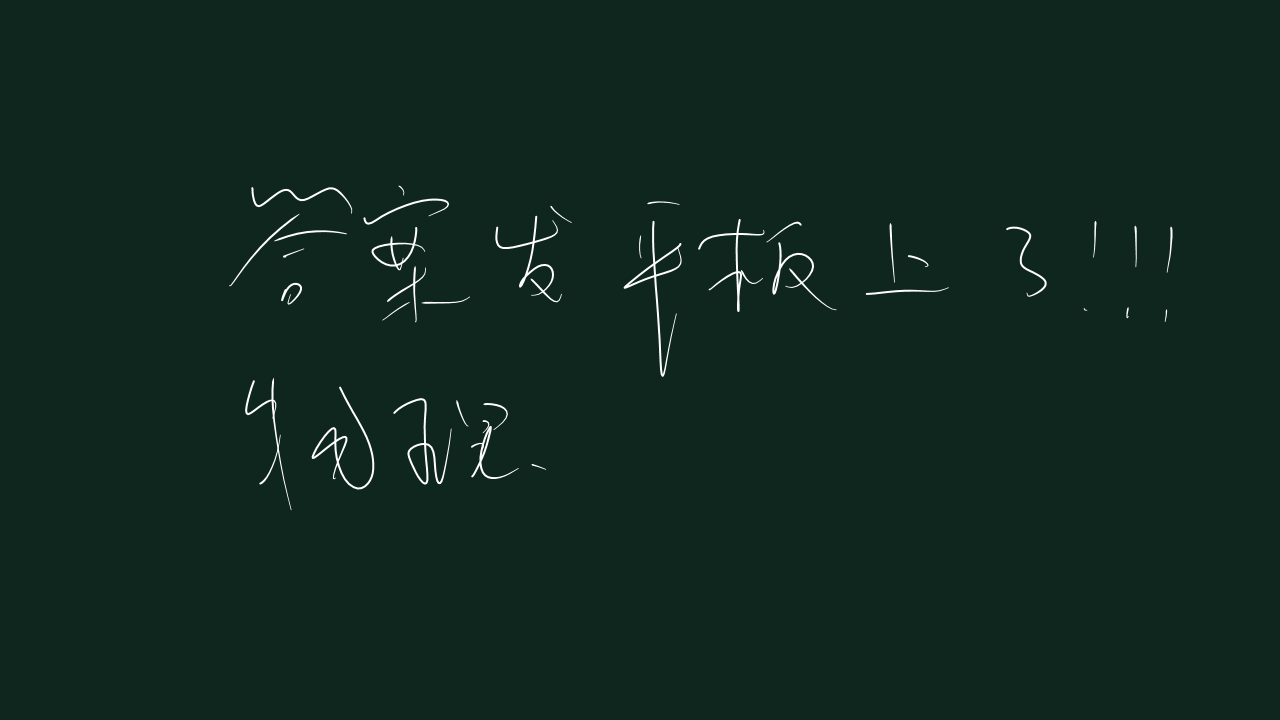 答案发平板上了!!!
物理.